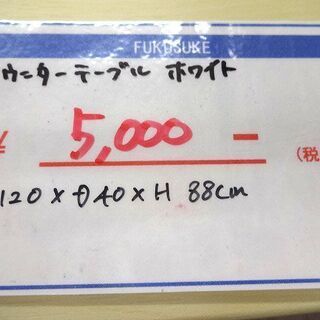 FUKUSUKE
ウンターテーブル ホワイト
¥ 5,000 - (税
120 × D40 × H 88cm